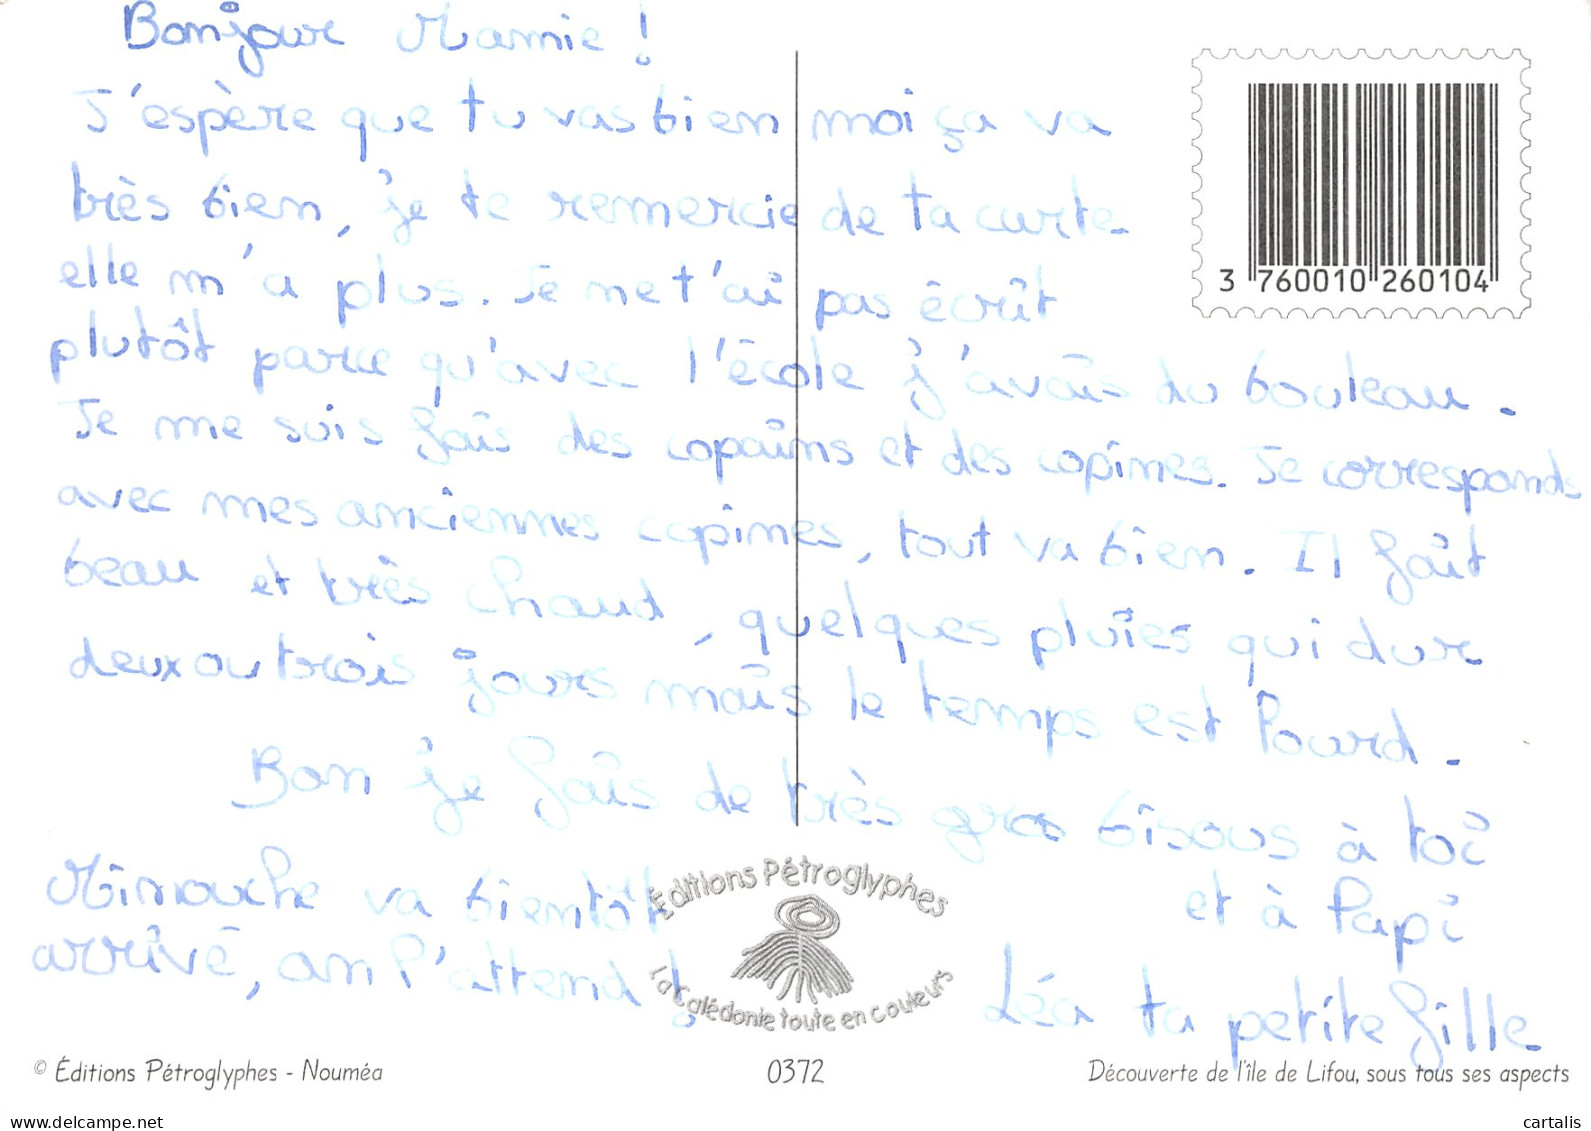 Bonjour Mamie !
J'espère que tu vas bien moi ça va
très bien, je te remercie de ta carte
elle m'a plus. Je ne t'ai pas écrit
plutôt parce qu'avec l'école j'avais du bouleau.
Je me suis fais des copains et des copines. Je corresponds
avec mes anciennes copines, tout va bien. Il fait
beau et très chaud, quelques pluies qui dur
deux ou trois jours mais le temps est lourd.
Bon je fais de très gros bisous à toi
et à Papi
Minouche va bientôt
arrivé, on l'attend !
Léa ta petite fille
3 760010 260104
Éditions Pétroglyphes
La Calédonie toute en couleurs
© Éditions Pétroglyphes - Nouméa
0372
Découverte de l'île de Lifou, sous tous ses aspects
www.delcampe.net
cartalis